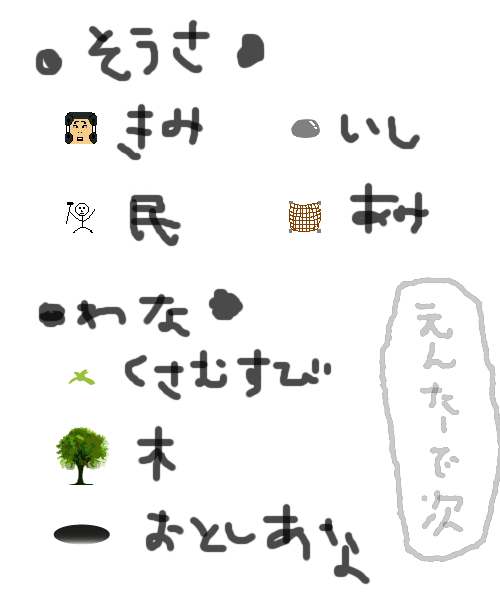 そうさ
きみ
いし
民
あみ
わな
くさむすび
木
おとしあな
えんたーで次